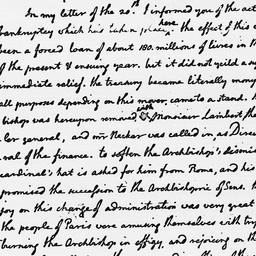 In my letter of the 20th I informed you of the act
bankruptcy which has taken place here. the effect of this
been a forced loan of about 180. millions of livres in th
of the present & ensuing year. but it did not yeild a sy
immediate relief. the treasury became literally mony
all purposes depending on this mover came to a stand. the
bishop was hereupon removed, with Monsieur Lambert, the
ler general, and mr Necker was called in, as Direc
ral of the finance. to soften the Archbishop's dismis
cardinal's hat is asked for him from Rome, and his
promised the succession to the Archbishopric of Sens.
joy on this change of administration was very great
the people of Paris were amusing themselves with try
burning the Archbishop in effigy, and rejoicing on th